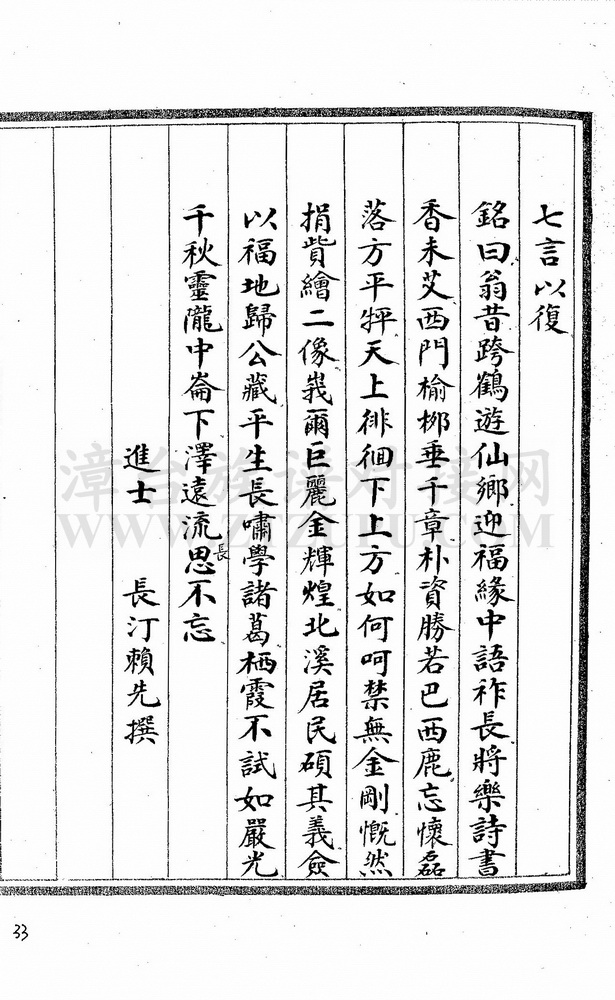 七言以復
銘曰翁昔跨鶴遊仙鄉迎福緣中語祚長將樂詩書
香未艾西門榆柳垂千章朴資勝若巴西鹿忘懷磊
落方平枰天上徘徊下上方如何呵禁無金剛慨然
捐貲繪二像峩爾巨麗金輝煌北溪居民碩其義僉
以福地歸公藏平生長嘯學諸葛栖霞不試如嚴光
千秋靈隴中崙下澤遠流長思不忘
進士 長汀賴先撰
漳台族谱对接网
WWW.ZTZUPU.COM
33